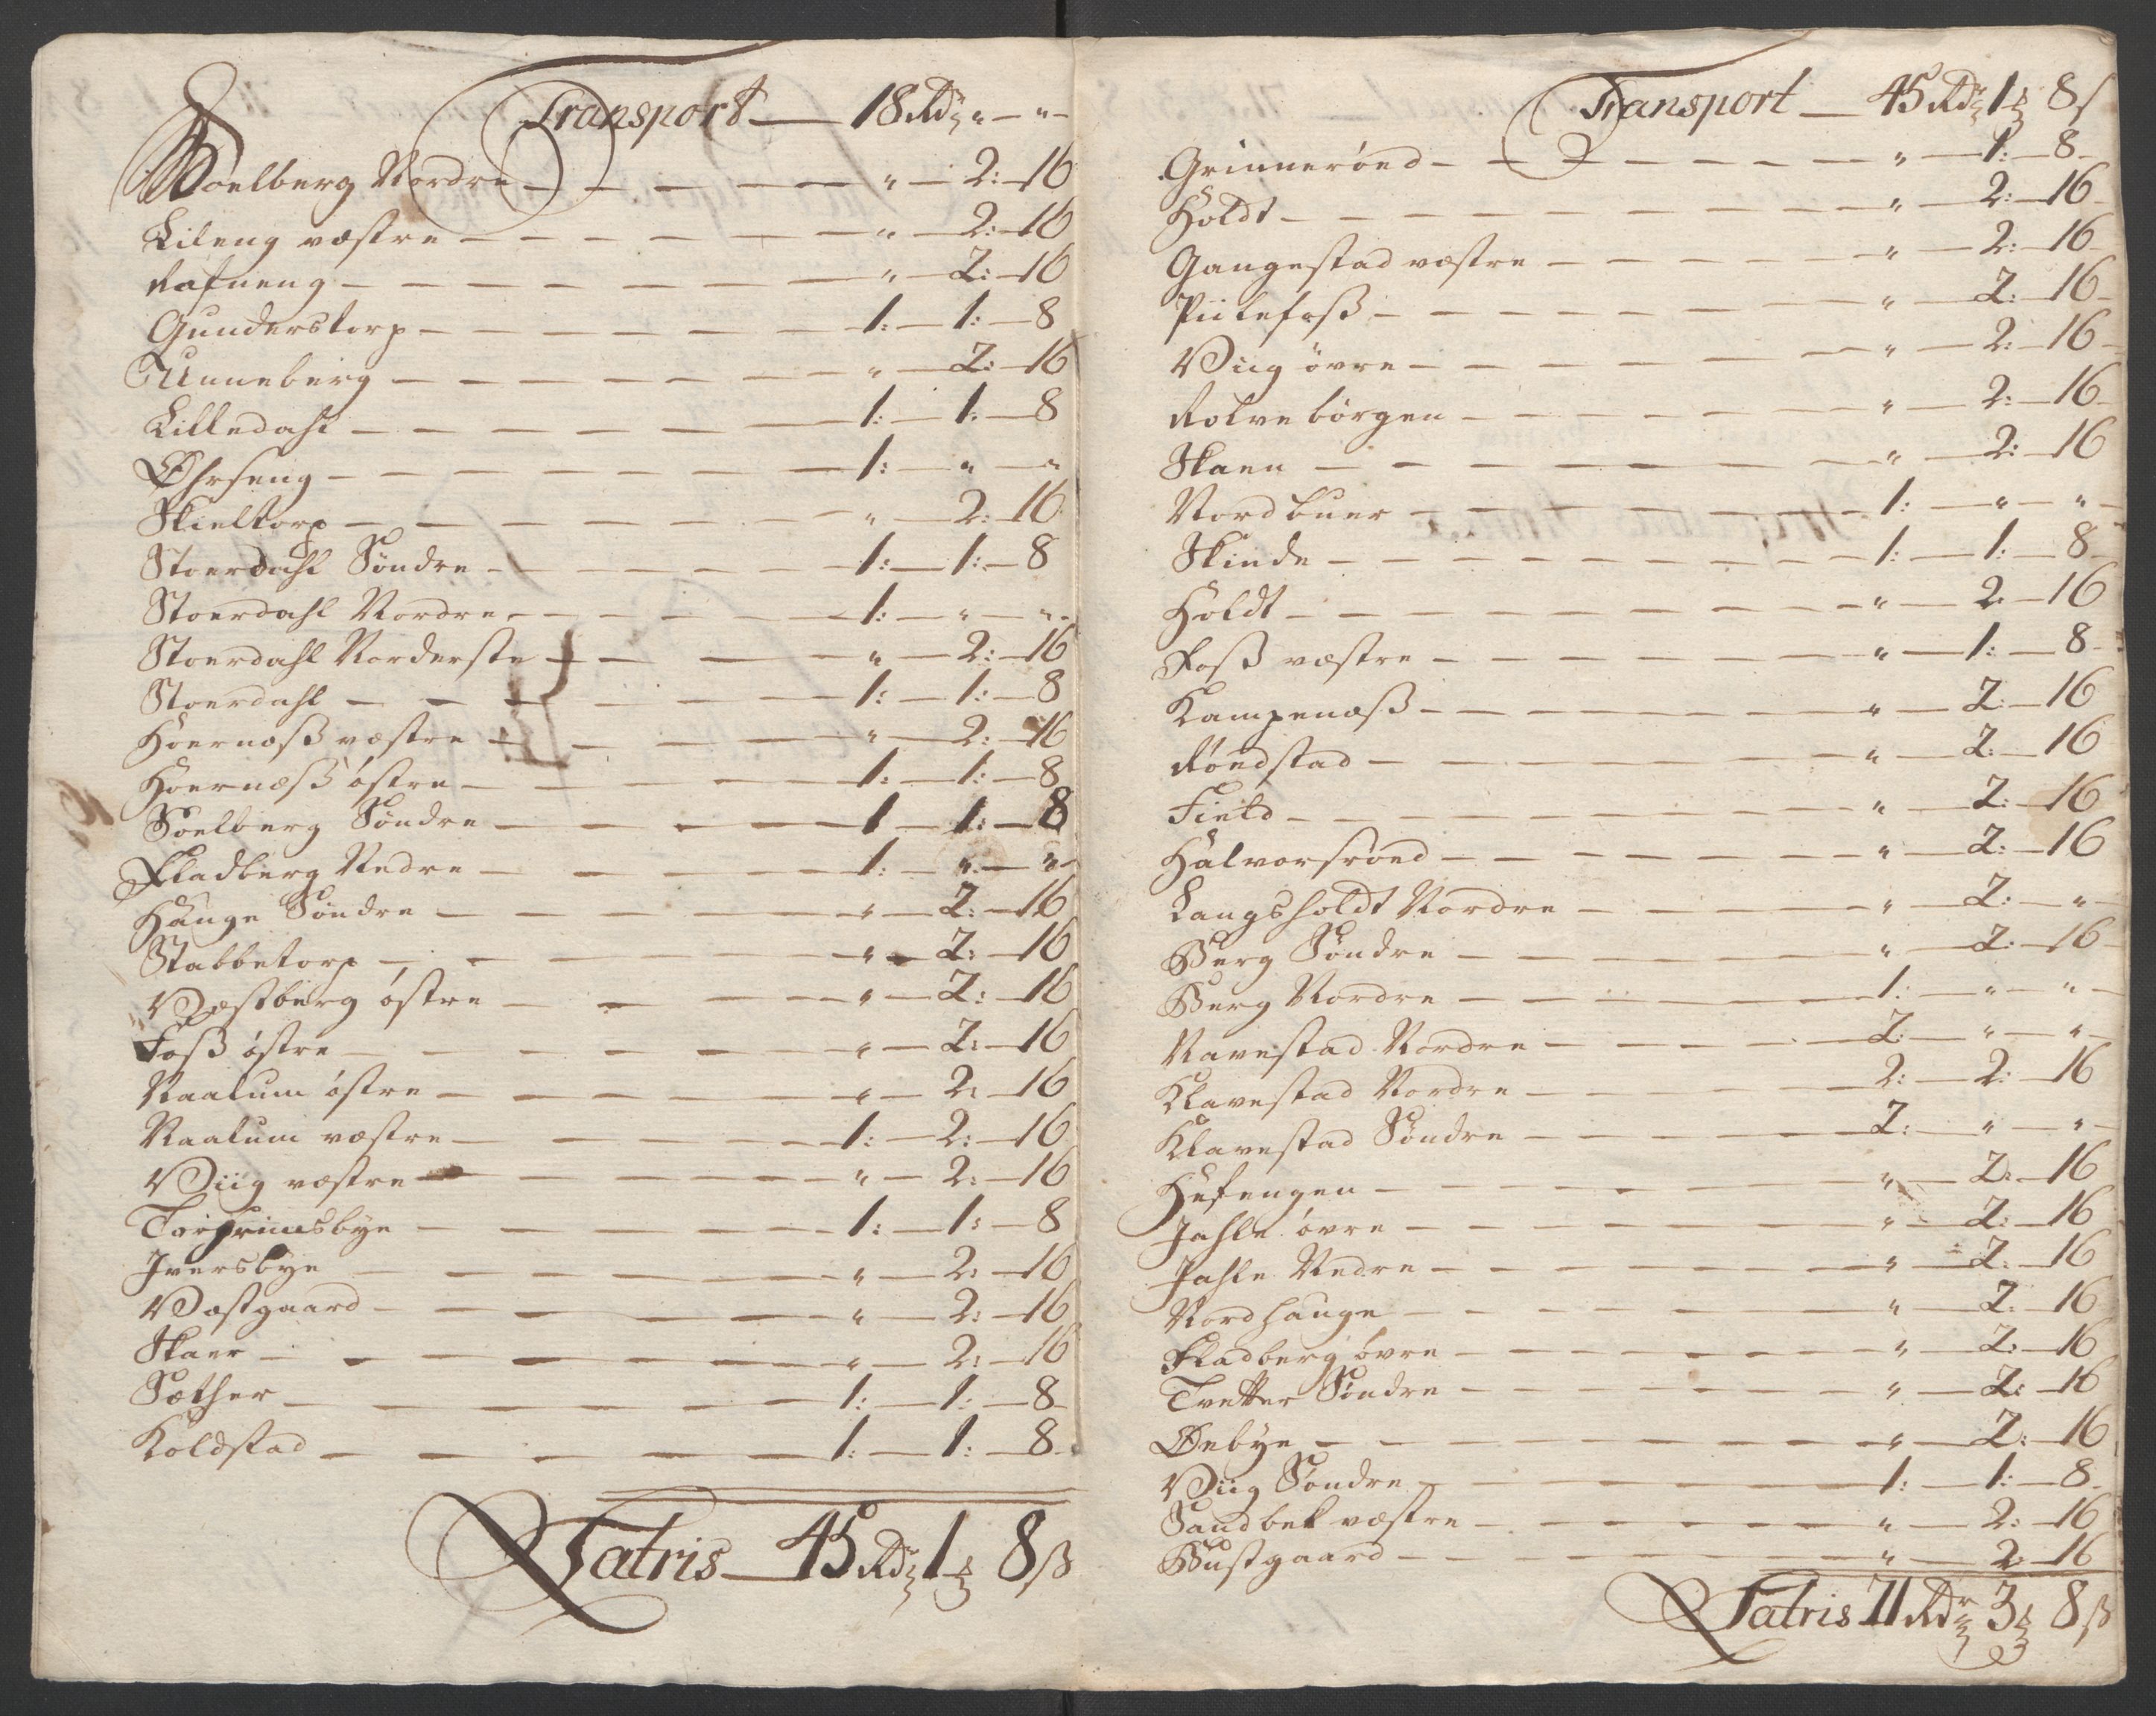 Transport — 18 Rdr „ — „ —
Soelberg Nordre — „ — 2: — 16
Lileng væstre — „ — 2: — 16
Rafneng — „ — 2: — 16
Gunderstorp — 1: — 1: — 8
Tunneberg — „ — 2: — 16
Lilledahl — 1: — 1: — 8
Ohrseng — 1: — „ — „
Skieltorp — „ — 2: — 16
Stoerdahl Søndre — 1: — 1: — 8
Stoerdahl Nordre — 1: — „ — „
Stoerdahl Norderste — „ — 2: — 16
Stoerdahl — 1: — 1: — 8
Hoernæsß væstre — „ — 2: — 16
Hoernæsß østre — 1: — 1: — 8
Soelberg Søndre — 1 — 1: — 8
Fladberg Nedre — 1: — „ — „
Hauge Søndre — „ — 2: — 16
Stabbetorp — „ — 2: — 16
Væstberg østre — „ — 2: — 16
Foß østre — „ — 2: — 16
Naalum østre — „ — 2: — 16
Naalum væstre — 1: — 2: — 16
Viig væstre — „ — 2: — 16
Torgrimsbye — 1: — 1: — 8
Iversbye — „ — 2: — 16
Væstgaard — „ — 2: — 16
Skaer — „ — 2: — 16
Sæther — 1: — 1: — 8
Koldstad — 1: — 1: — 8
Latris — 45 Rdr 1 8 ß
Transport — 45 Rdr 1 8 ß
Grinnerønd — „ — 1: — 8
Holdt — „ — 2: — 16
Gangestad væstre — „ — 2: — 16
Piilefoß — „ — 2: — 16
Viig øvre — „ — 2: — 16
Rolvebørgen — „ — 2: — 16
Skaen — „ — 2: — 16
Nordbuer — 1: — „ — „
Skinde — 1: — 1: — 8
Holdt — „ — 2 — 16
Foß væstre — „ — 1: — 8
Kampenæß — „ — 2: — 16
Røndstad — „ — 2: — 16
Field — „ — 2: — 16
Halvorsrønd — „ — 2: — 16
Langsholdt Nordre — „ — 2: — „
Berg Søndre — „ — 2: — 16
Berg Nordre — 1: — „ — „
Navestad Nordre — 2: — „ — „
Klavestad Nordre — 2: — 2: — 16
Klavestad Søndre — 2: — „ — „
Hufengen — „ — 2: — 16
Jahle øvre — „ — 2: — 16
Jahle Nedre — „ — 2: — 16
Nordhauge — „ — 2: — 16
Fladberg øvre — „ — 2: — 16
Tvetter Søndre — „ — 2: — 16
Øebye — „ — 2: — 16
Viig Søndre — 1: — 1: — 8
Sandbek væstre — „ — 2: — 16
Bustgaard — „ — 2: — 16
Latris 71 Rdr 3 8 ß